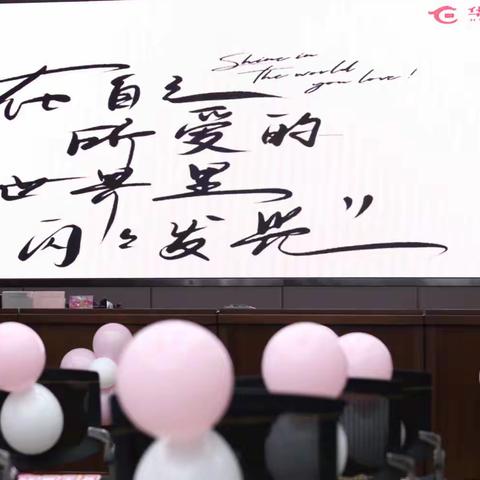 在自己
所爱的
世界里
闪闪发光"
Shine in
the world
you love!
华